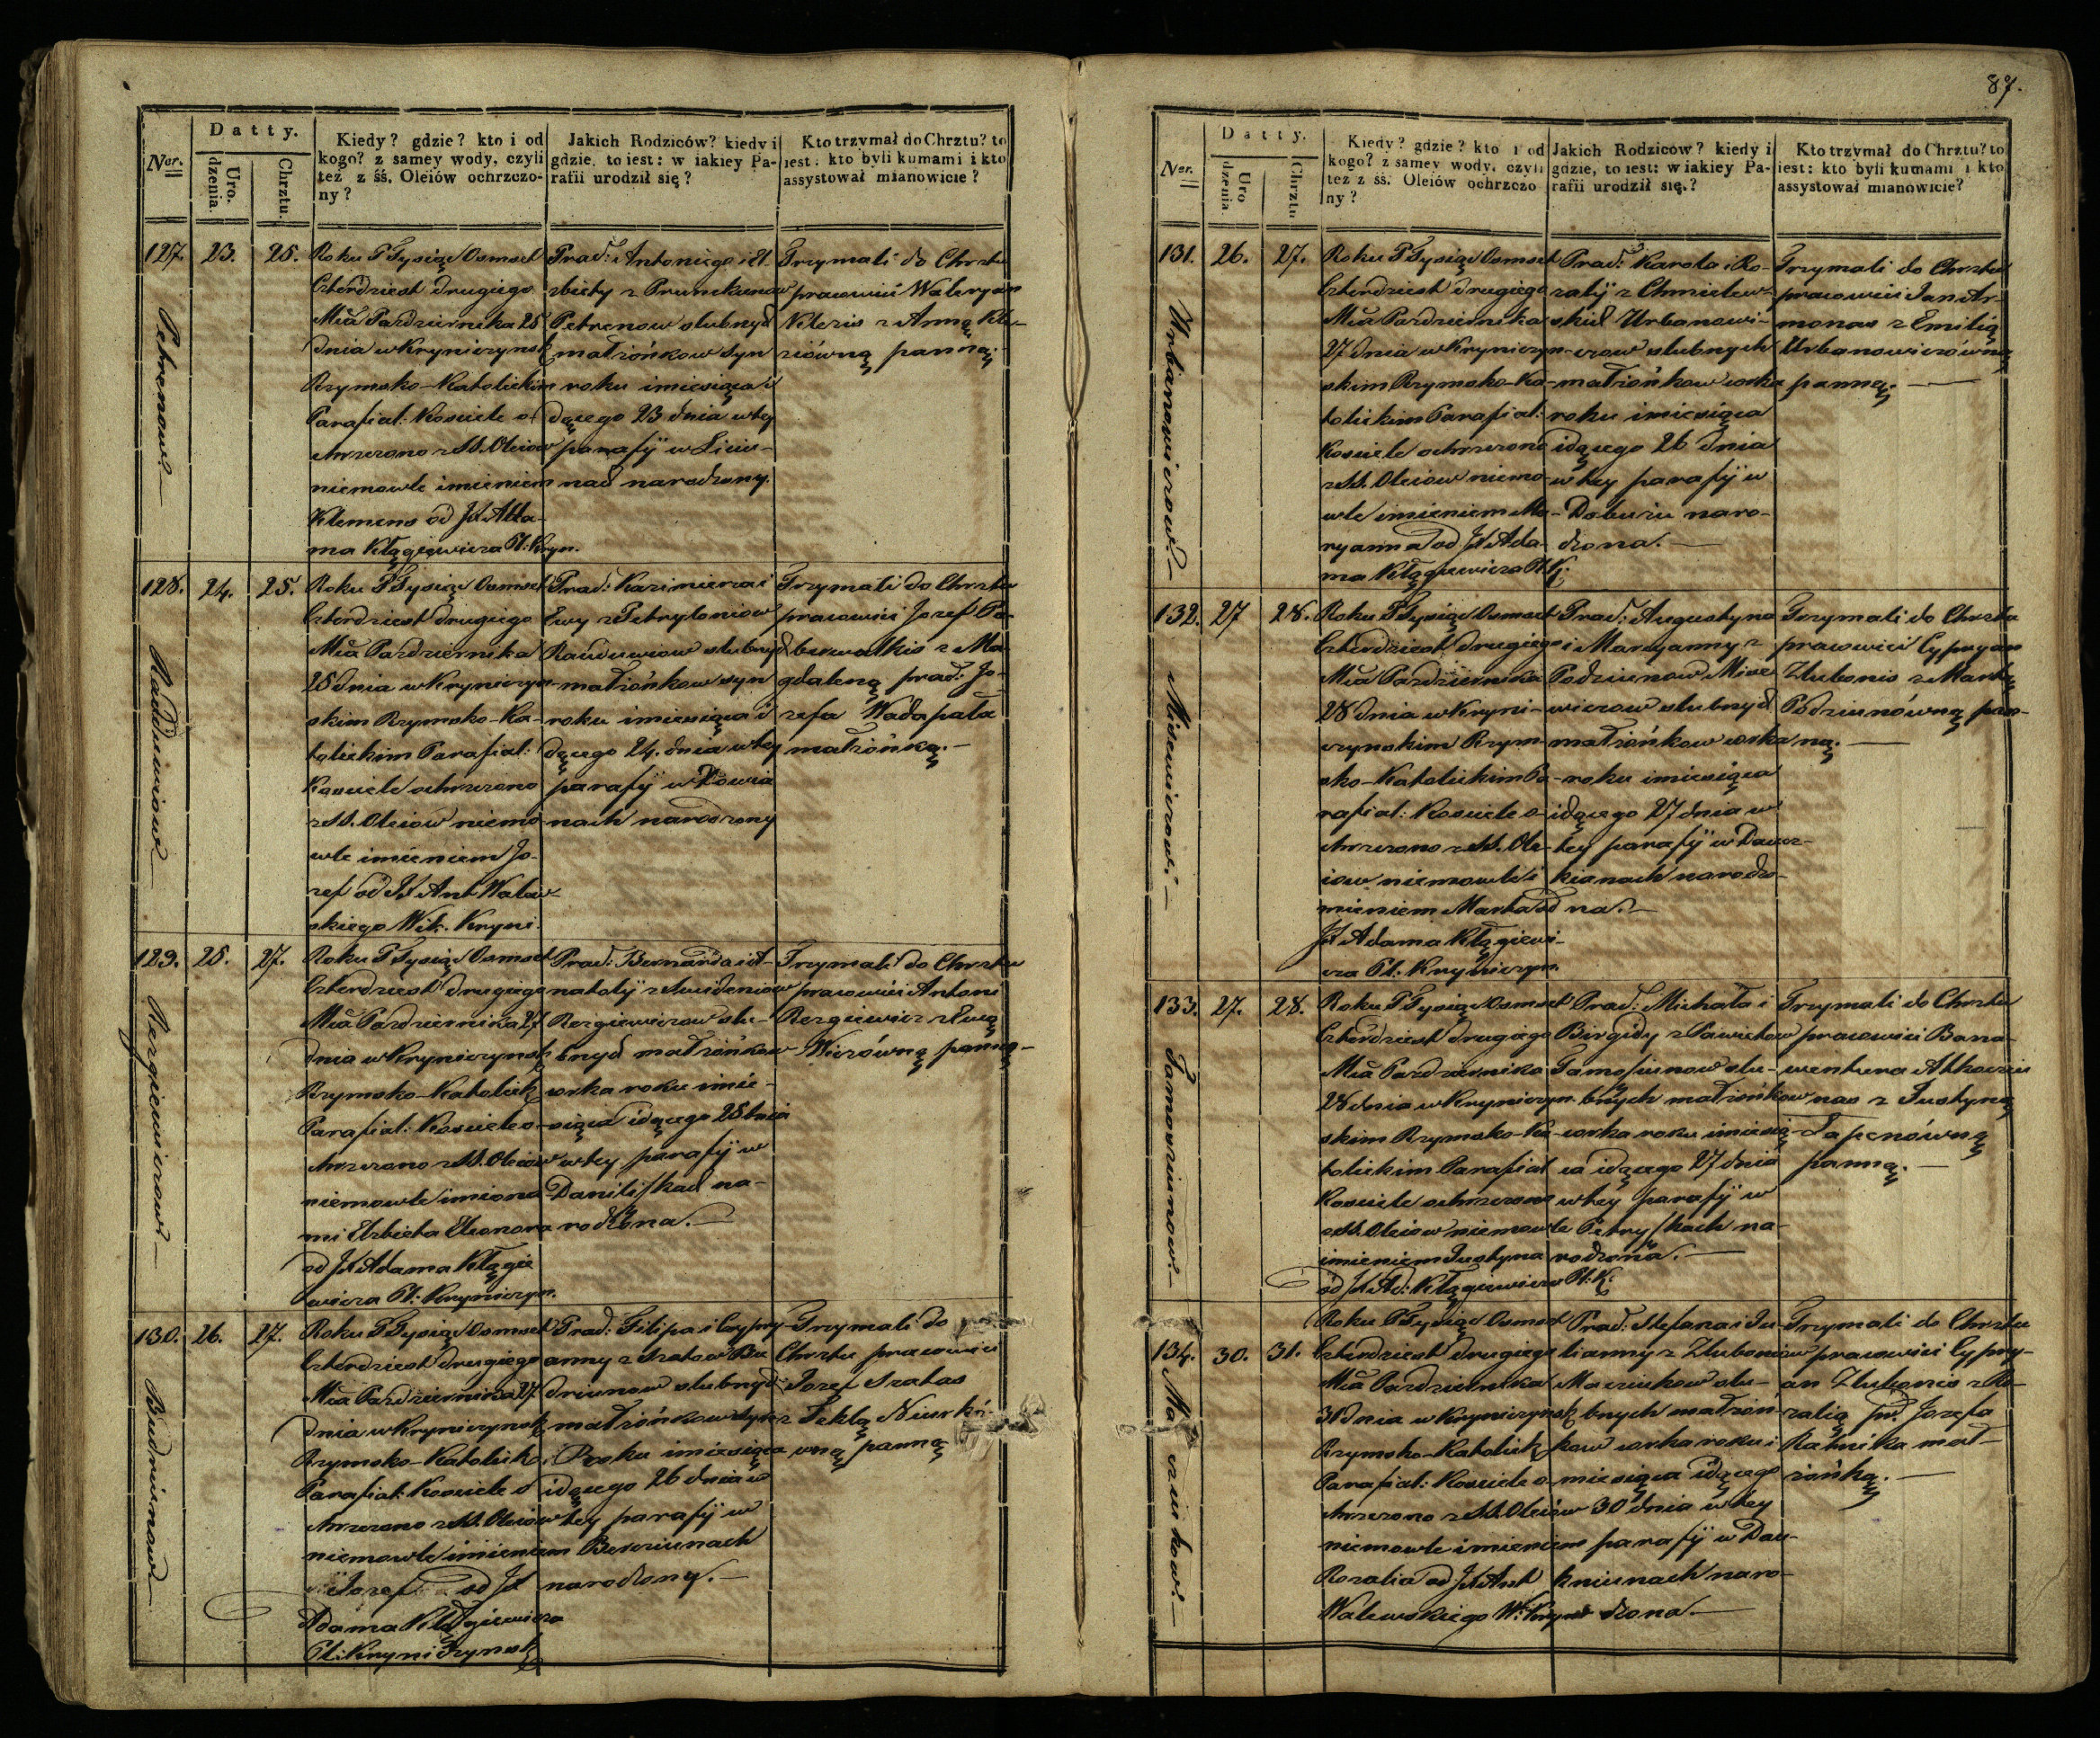 87.
Ner.
Datty.
Uro. dzenia.
Chrztu.
Kiedy? gdzie? kto i od
kogo? z samey wody, czyli
też z śś. Oleiów ochrzczo-
ny?
Jakich Rodziców? kiedy i
gdzie, to iest: w iakiey Pa-
rafii urodził się?
Kto trzymał do Chrztu? to
iest: kto byli kumami i kto
assystował mianowicie?
127.
23.
25.
Petrenow
Roku P Tysiąc Osmset
Czterdziest drugiego
Mca Pazdziernika 25
dnia w Kryniczynsk
Rzymsko-Katolickim
Parafial: Kosciele o-
chrzczono z SS. Oleiow
niemowle imieniem
Klemens od JX Ada-
ma Kłągiewicza Pl: Kryn.
Prad: Antoniego i El-
zbiety z
Petrenow slubnych
małżonkow syn
roku i miesiąca i
dącego 23 dnia w tey
parafÿ w
narodzony.
Trzymali do Chrztu
pracowici Waleryan
z Anną
panną.
128.
24.
25.
Roku P Tysiąc Osmset
Czterdziest drugiego
Mca Pazdziernika
25 dnia w Kryniczyn-
skim Rzymsko-Ka-
tolickim Parafial:
Kosciele ochrzczono
z SS. Oleiow niemo
wle imieniem Jo-
zef od JX Ant Walew-
skiego Wik. Kryni.
Prad: Kazimierza i
Ewy z Petryloniow
slubnych
małżonkow syn
roku i miesiąca i
dącego 24. dnia w tey
parafÿ w
narodzony
Trzymali do Chrztu
pracowici Jozef
z Ma-
gdaleną prad: Jo-
zefa
małżonką.
129.
25.
27.
Rezgiewiczow
Roku P Tysiąc Osmset
Czterdziest drugiego
Mca Pazdziernika 27
dnia w Kryniczynsk
Rzymsko-Katolick
Parafial: Kosciele o-
chrzczono z SS. Oleiow
niemowle imiona-
mi Elzbieta Eleonora
od JX Adama Kłągie
wicza Pl: Kryniczyn.
Prad: Bernarda i A-
natolÿ z
Rezgiewiczow slu-
bnych małżonkow
corka roku i mie-
siąca idącego 25 dnia
w tey parafÿ w
Daniliszkach na-
rodzona.
Trzymali do Chrztu
pracowici Antoni
Rezgiewicz z Ewą
panną
130.
26.
27.
Budriunow
Roku P Tysiąc Osmset
Czterdziest drugiego
Mca Pazdziernika 27
dnia w Kryniczynsk
Rzymsko-Katolick
Parafial: Kosciele o
chrzczono z SS. Oleiow
niemowle imieniem
Jozef od JX
Adama Kłągiewicza
Pl: Kryniczynsk
Prad: Filipa i Cypry-
anny z Szatow Bu
driunow slubnych
małżonkow syn
Roku i miesiąca
idącego 26 dnia w
tey parafÿ w
narodzony.
Trzymali do
Chrztu pracowici
Jozef Szatas
z Teklą
panną
Nr.
Datty.
Uro dzenia.
Chrztu
Kiedy? gdzie? kto i od
kogo? z samey wody, czyli
też z śś. Oleiów ochrzczo
ny?
Jakich Rodziców? kiedy i
gdzie, to iest: w iakiey Pa-
rafii urodził się?
Kto trzymał do Chrztu? to
iest: kto byli kumami i kto
assystował mianowicie?
131.
26.
27.
Urbanowiczow
Roku P Tysiąc Osmset
Czterdziest drugiego
Mca Pazdziernika
27 dnia w Kryniczyn-
skim Rzymsko-Ka-
tolickim Parafial:
Kosciele ochrzczono
z SS. Oleiow niemo-
wle imieniem Ma-
ryanna od JX Ada-
ma Kłągiewicza Pl K:
Prad: Karola i Ro-
zalÿ z Chmielew-
skich Urbanowi-
czow slubnych
małżonkow corka
roku i miesiąca
idącego 26 dnia
w tey parafÿ w
Dobuziu naro-
dzona.
Trzymali do Chrztu
pracowici Jan Ar-
monas z Emilią
Urbanowiczówną
panną.
132.
27
28.
Misewiczow
Roku P Tysiąc Osmset
Czterdziest drugiego
Mca Pazdziernika
28 dnia w Kryni-
czynskim Rzym-
sko-Katolickim Pa-
rafial: Kosciele o-
chrzczono z SS. Ole-
iow niemowle i
mieniem Marta od
JX Adama Kłągiewi-
cza Pl. Kryniczyn.
Prad: Augustyna
i Maryanny z
Podziunow Mise
wiczow slubnych
małżonkow corka
roku i miesiąca
idącego 27 dnia w
tey parafÿ w
narodzo-
na.
Trzymali do Chrztu
pracowici Cypryan
Zlubonis z Martą
Podziunówną pan-
ną.
133.
27.
28.
Tamosziunow
Roku P Tysiąc Osmset
Czterdziest drugiego
Mca Pazdziernika
28 dnia w Kryniczyn-
skim Rzymsko-Ka-
tolickim Parafial
Kosciele ochrzczono
z SS. Oleiow niemowle
imieniem Justyna
od JX Ad: Kłągiewicza Pl: K:
Prad: Michała i
Birgidy z Pawiełow
Tamosziunow slu-
bnych małżonkow
corka roku i miesią-
ca idącego 27 dnia
w tey parafÿ w
Petryszkach na-
rodzona.
Trzymali do Chrztu
pracowici Bona-
wentura
z Justyną
panną.
134.
30.
31.
Maczukow
Roku P Tysiąc Osmset
Czterdziest drugiego
Mca Pazdziernika
31 dnia w Krynicynsk
Rzymsko-Katolick
Parafial: Kosciele o-
chrzczono z SS. Oleiów
niemowle imieniem
Rozalia od JX Ant
Walewskiego W: Kryn
Prad: Stefana i Ju-
lianny z Zluboniow
Maczukow slu-
bnych małżon-
kow corka roku i
miesiąca idącego
30 dnia w tey
parafÿ w Dau-
kniunach naro-
dzona.
Trzymali do Chrztu
pracowici Cypry-
an Zlubonis z Ro-
zalią pd. Jozefa
mał-
żonką.